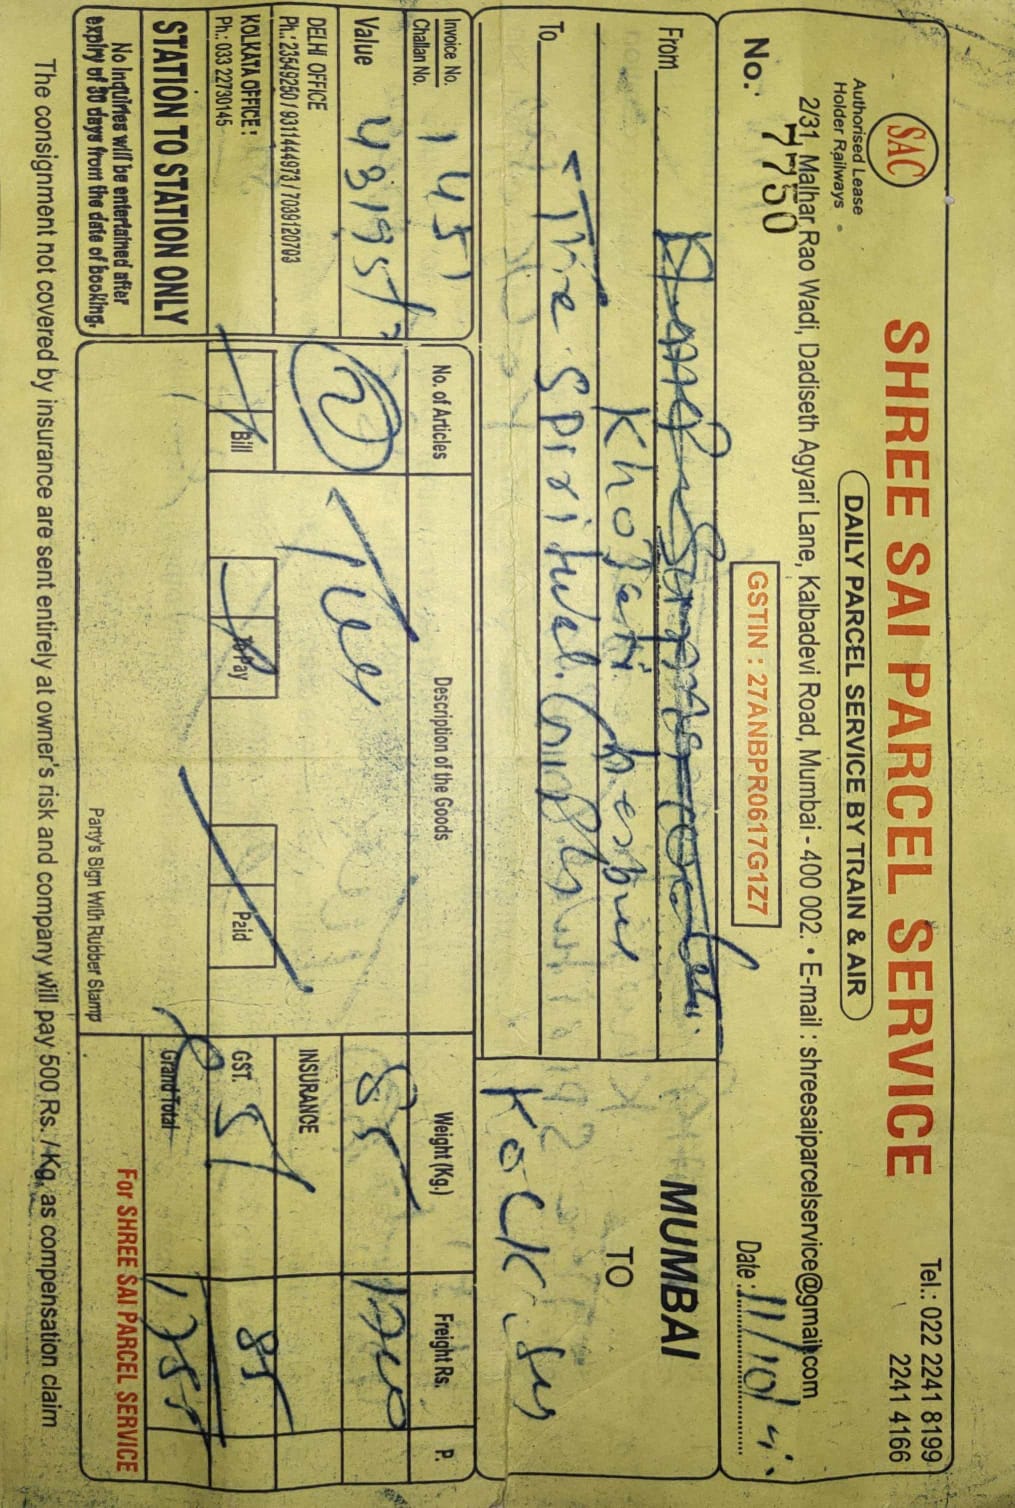 SHREE SAI PARCEL SERVICE
Tel.: 022 2241 8199
2241 4166
SAC
Authorised Lease
Holder Railways
DAILY PARCEL SERVICE BY TRAIN & AIR
2/31, Malhar Rao Wadi, Dadiseth Agyari Lane, Kalbadevi Road, Mumbai - 400 002. • E-mail : shreesaiparcelservice@gmail.com
No. 7750
GSTIN : 27ANBPR0617G1Z7
Date : 11/10/
From
MUMBAI
TO
To The Spiritual
Invoice No.
Challan No.
145
Value
43195/
DELHI OFFICE
Ph.: 23549250 / 9311444973 / 7039120703
KOLKATA OFFICE :
Ph.: 033 22730145
STATION TO STATION ONLY
No Inquiries will be entertained after
expiry of 30 days from the date of booking.
No. of Articles
Description of the Goods
Weight (Kg.)
Freight Rs.
P.
2
85
INSURANCE
Bill
To Pay
Paid
GST. 5
85
Grand Total
Party's Sign With Rubber Stamp
For SHREE SAI PARCEL SERVICE
The consignment not covered by insurance are sent entirely at owner's risk and company will pay 500 Rs. / Kg. as compensation claim